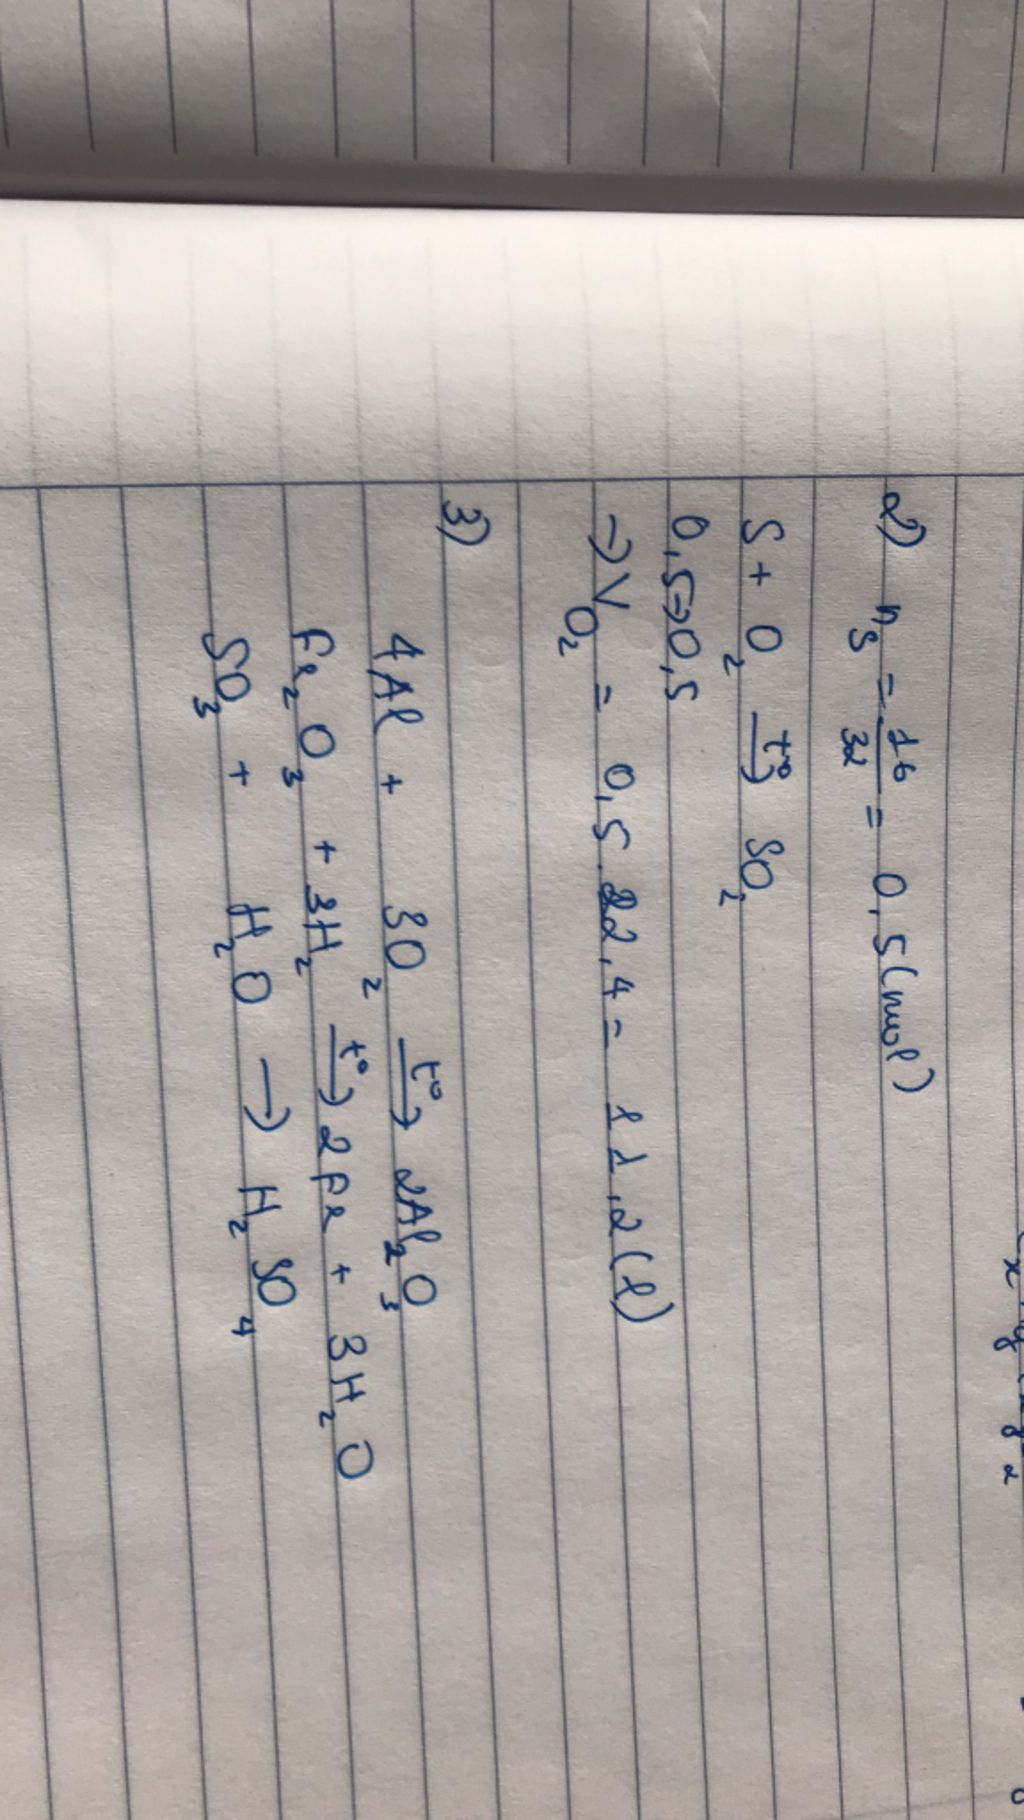 2) n_S = 16/32 = 0,5 (mol)
S + O₂ →(t°) SO₂
0,5 → 0,5
→ V_O₂ = 0,5.22,4 = 11,2 (l)
3)
4Al + 3O₂ →(t°) 2Al₂O₃
Fe₂O₃ + 3H₂ →(t°) 2Fe + 3H₂O
SO₃ + H₂O → H₂SO₄